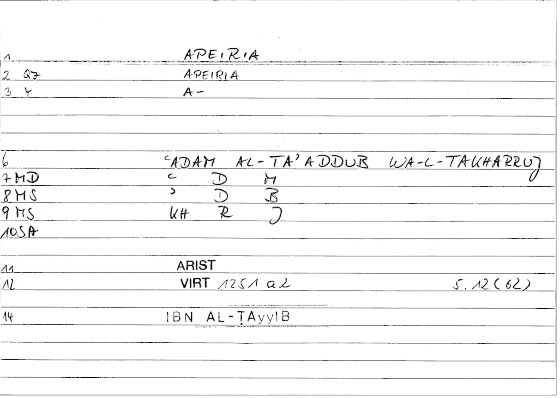 1 APEIRIA
2 Q7 APEIRIA
3 Y A-
6 ʿADAM AL-TAʾADDUB WA-L-TAKHARRUJ
7 MD ʿ D M
8 MS ʾ D B
9 MS KH R J
10 SA
11 ARIST
12 VIRT 1251 a2 5.12(62)
14 IBN AL-ṬAyyIB